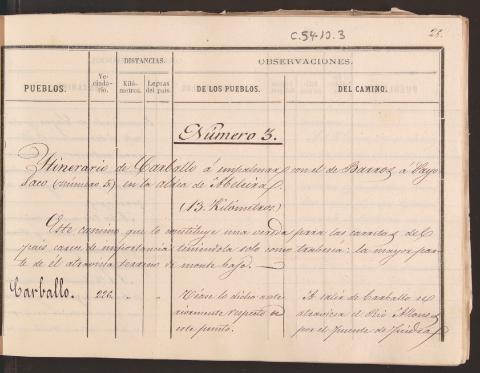 C.54-10.3
28.
DISTANCIAS.
OBSERVACIONES.
PUEBLOS.
Ve-
cinda-
rio.
Kiló-
metros.
Leguas
del país.
DE LOS PUEBLOS.
DEL CAMINO.
Número 3.
Itinerario de Carballo á empalmar con el de Barros á Cayo
Saco (número 5) en la aldea de
(13 Kilómetros)
Este camino que lo constituye una vereda para las carretas del
país, carece de importancia teniéndola solo como trabesía: la mayor par-
te de él atraviesa terreno de monte bajo.
Carballo.
226.
"
"
Véase lo dicho ante-
riormente respecto de
este punto.
A salir de Carballo se
atraviesa el Rio
por el Puente de